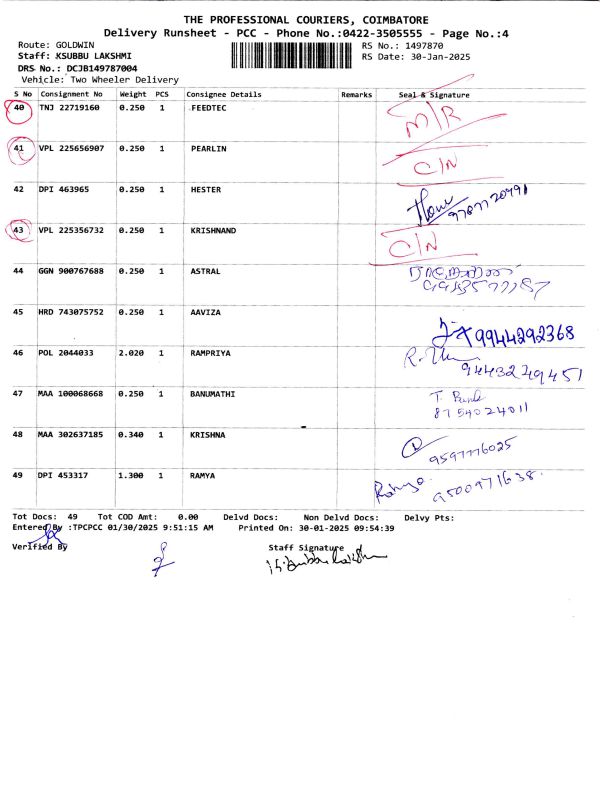 THE PROFESSIONAL COURIERS, COIMBATORE
Delivery Runsheet - PCC - Phone No.:0422-3505555 - Page No.:4
Route: GOLDWIN RS No.: 1497870
Staff: KSUBBU LAKSHMI RS Date: 30-Jan-2025
DRS No.: DCJB149787004
Vehicle: Two Wheeler Delivery
S No Consignment No Weight PCS Consignee Details Remarks Seal & Signature
40 TNJ 22719160 0.250 1 FEEDTEC M/R
41 VPL 225656907 0.250 1 PEARLIN C/N
42 DPI 463965 0.250 1 HESTER
43 VPL 225356732 0.250 1 KRISHNAND C/N
44 GGN 900767688 0.250 1 ASTRAL
45 HRD 743075752 0.250 1 AAVIZA 9944292368
46 POL 2044033 2.020 1 RAMPRIYA 9443249451
47 MAA 100068668 0.250 1 BANUMATHI 8754024011
48 MAA 302637185 0.340 1 KRISHNA 9597776025
49 DPI 453317 1.300 1 RAMYA Ramya 9500971638.
Tot Docs: 49 Tot COD Amt: 0.00 Delvd Docs: Non Delvd Docs: Delvy Pts:
Entered By :TPCPCC 01/30/2025 9:51:15 AM Printed On: 30-01-2025 09:54:39
Verified By Staff Signature